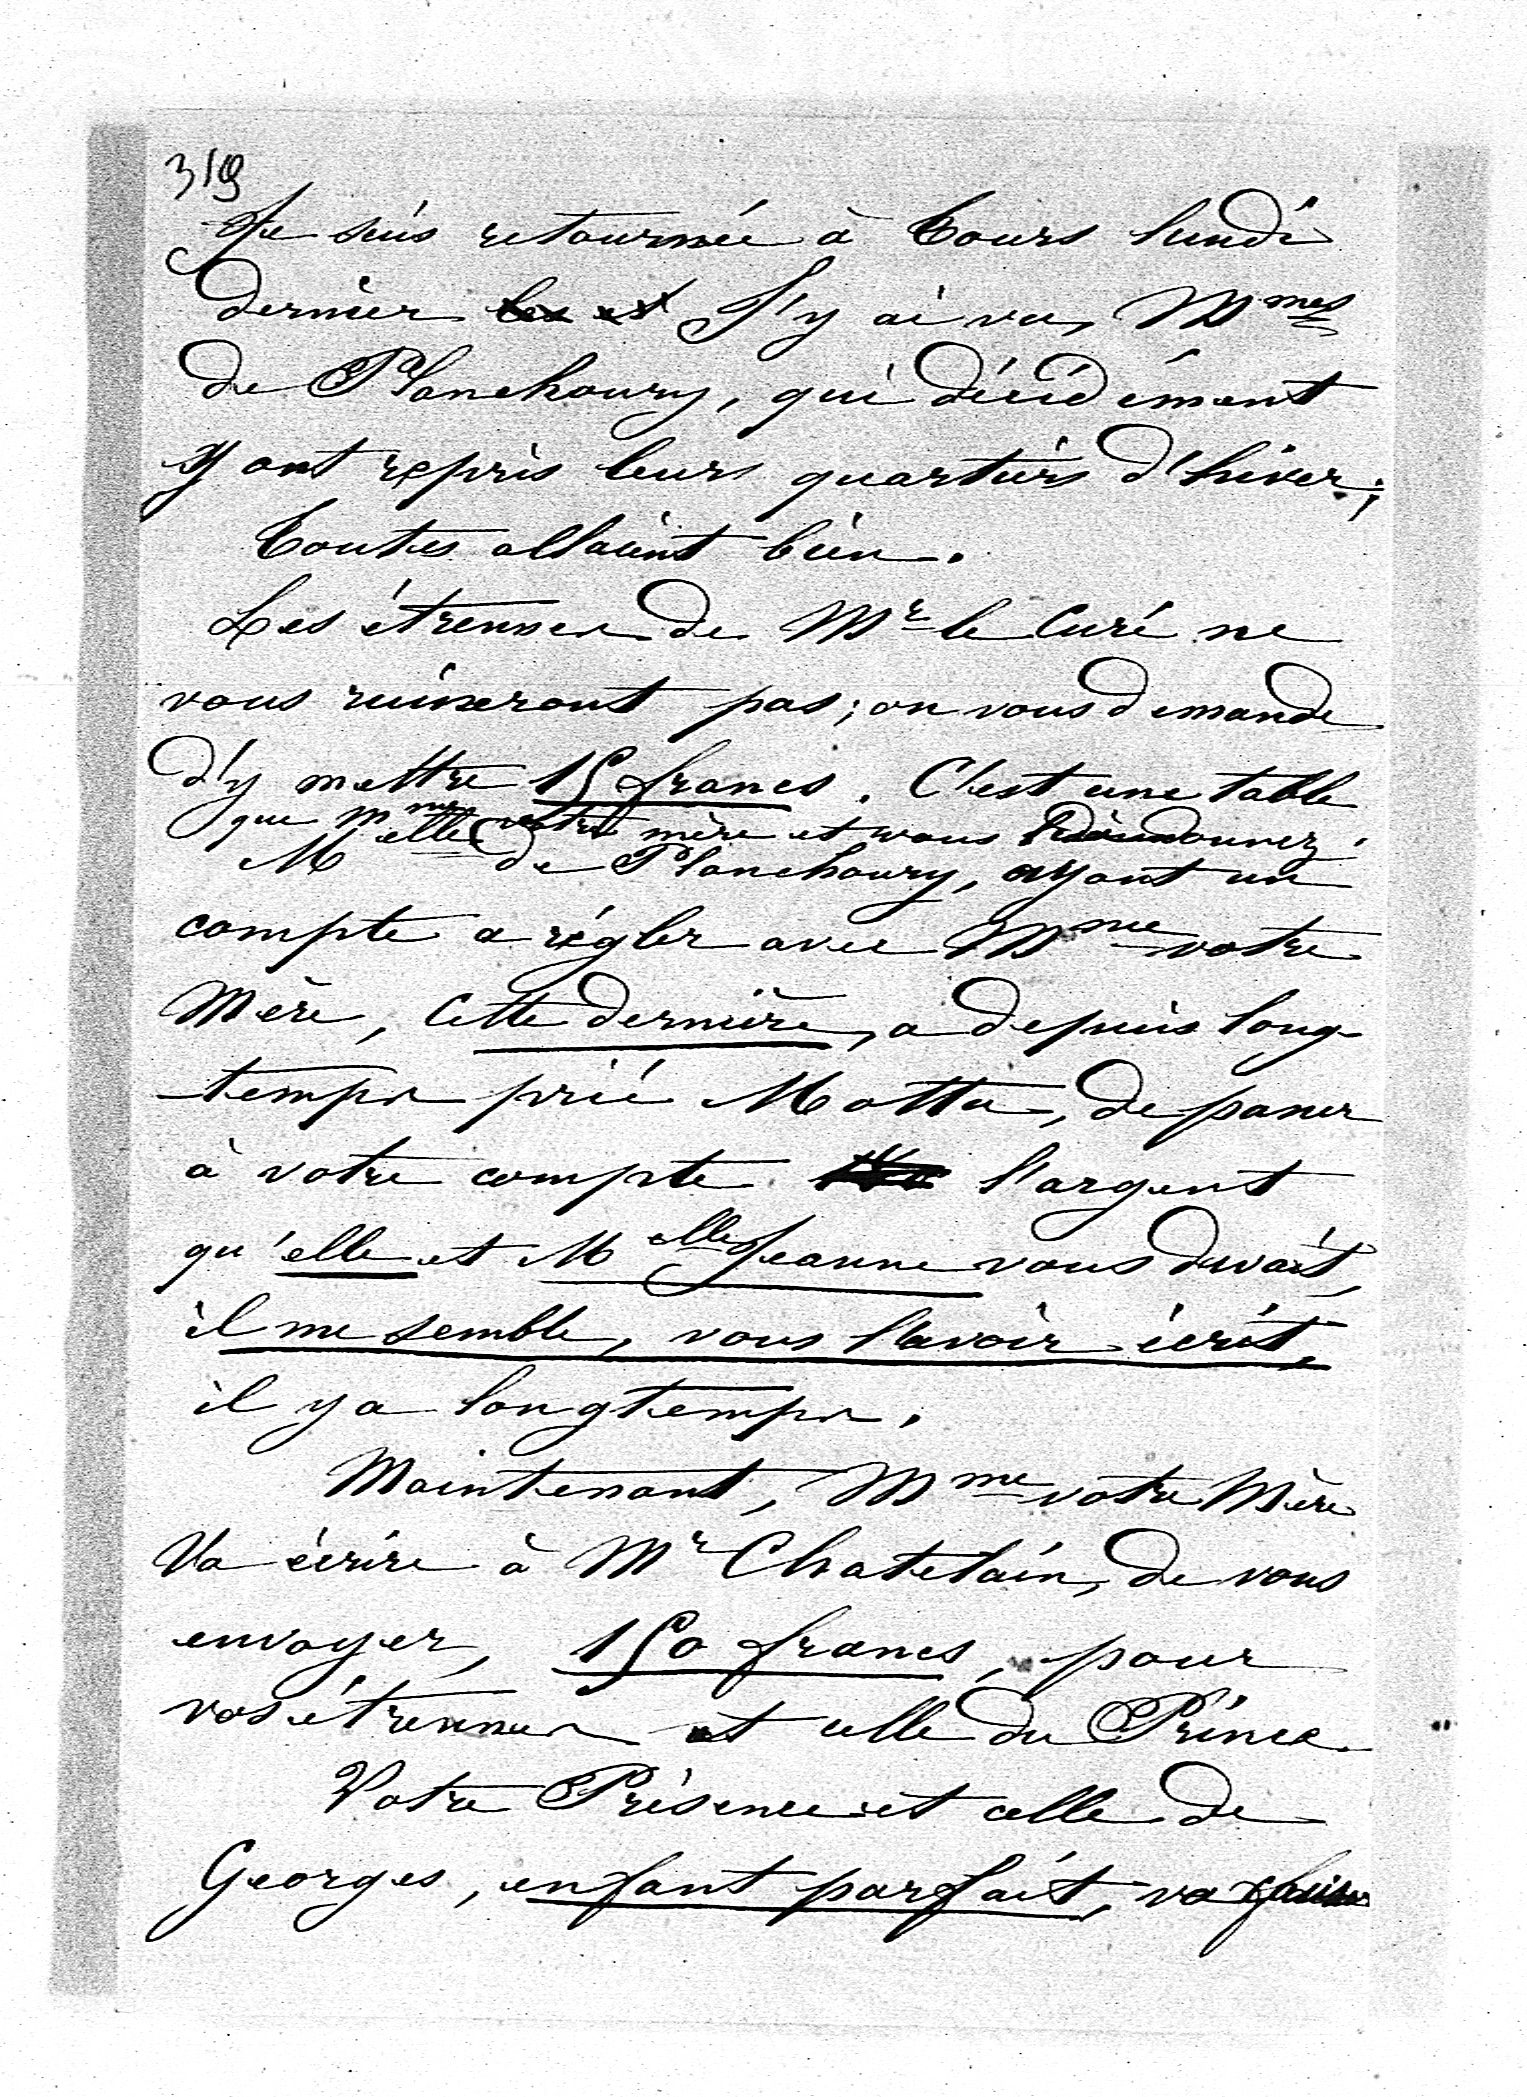 319
Je suis retournée à Tours lundi
dernier J'y ai vu, Mmes
de Planchoury, qui décidément
y ont repris leurs quartiers d'hiver;
Toutes allaient bien.
Les étrennes de Mr le Curé ne
vous ruineront pas; on vous demande
d'y mettre 15 francs. C'est une table
que Mme votre mère et vous donnez.
Melle de Planchoury, ayant un
compte a régler avec Mme votre
Mère, Cette dernière, a depuis long-
-temps prié Motta, de passer
à votre compte l'argent
qu'elle et Melle Jeanne vous devait,
il me semble, vous l'avoir écrit,
il y a longtemps.
Maintenant, Mme votre Mère
Va écrire à Mr Chatelain, de vous
envoyer, 150 francs, pour
vos étrennes et celle du Prince.
Votre Présence et celle de
Georges, enfant parfait, va